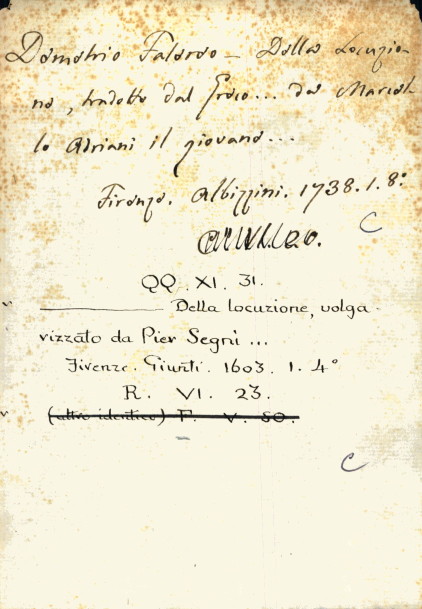 Demetrio Falereo — Della Locuzio-
ne, tradotto dal Greco... da Marcel-
lo Adriani il giovane...
Firenze. Albizzini. 1738. 1. 8º
C
QQ. XI. 31.
———— Della locuzione, volga-
rizzato da Pier Segni ...
Firenze. Giunti. 1603. 1. 4º
R. VI. 23.
(altro identico) F. V. 80.
C